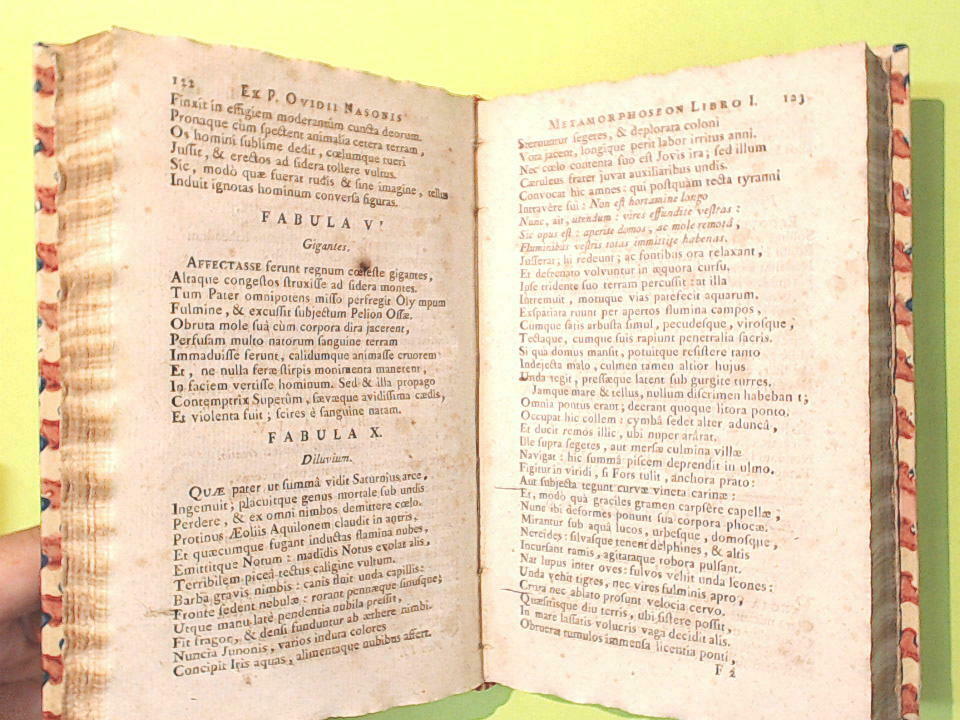 122 EX P. OVIDII NASONIS
Finxit in effigiem moderantûm cuncta deorum.
Pronaque cùm spectent animalia cetera terram,
Os homini sublime dedit, cœlumque tueri
Jussit, & erectos ad sidera tollere vultus.
Sic, modò quæ fuerat rudis & sine imagine, tellus
Induit ignotas hominum conversa figuras.
FABULA V'
Gigantes.
AFFECTASSE ferunt regnum cœleste gigantes,
Altaque congestos struxisse ad sidera montes.
Tum Pater omnipotens misso perfregit Olympum
Fulmine, & excussit subjectum Pelion Ossæ.
Obruta mole suâ cùm corpora dira jacerent,
Perfusam multo natorum sanguine terram
Immaduisse ferunt, calidumque animasse cruorem
Et, ne nulla feræ stirpis monimenta manerent,
In faciem vertisse hominum. Sed & illa propago
Contemptrix Superûm, sævæque avidissima cædis,
Et violenta fuit; scires è sanguine natam.
FABULA X.
Diluvium.
QUÆ pater ut summâ vidit Saturnius arce,
Ingemuit; placuitque genus mortale sub undis
Perdere, & ex omni nimbos demittere cœlo.
Protinus Æoliis Aquilonem claudit in antris,
Et quæcumque fugant inductas flamina nubes,
Emittitque Notum: madidis Notus evolat alis,
Terribilem piceâ tectus caligine vultum.
Barba gravis nimbis: canis fluit unda capillis:
Fronte sedent nebulæ: rorant pennæque sinusque;
Utque manu latè pendentia nubila pressit,
Fit fragor, & densi funduntur ab æthere nimbi.
Nuncia Junonis, varios induta colores
Concipit Iris aquas, alimentaque nubibus affert.
METAMORPHOSEON LIBRO I. 123
Sternuntur segetes, & deplorata coloni
Vota jacent, longique perit labor irritus anni.
Nec cœlo contenta suo est Jovis ira; sed illum
Cæruleus frater juvat auxiliaribus undis.
Convocat hic amnes: qui postquàm tecta tyranni
Intravêre sui: Non est hortamine longo
Nunc, ait, utendum: vires effundite vestras:
Sic opus est: aperite domos, ac mole remotâ,
Fluminibus vestris totas immittite habenas.
Jusserat; hi redeunt; ac fontibus ora relaxant,
Et defrenato volvuntur in æquora cursu.
Ipse tridente suo terram percussit: at illa
Intremuit, motuque vias patefecit aquarum.
Exspatiata ruunt per apertos flumina campos,
Cumque satis arbusta simul, pecudesque, virosque,
Tectaque, cumque suis rapiunt penetralia sacris.
Si qua domus mansit, potuitque resistere tanto
Indejecta malo, culmen tamen altior hujus
Unda tegit, pressæque latent sub gurgite turres.
Jamque mare & tellus, nullum discrimen habebant;
Omnia pontus erant; deerant quoque litora ponto.
Occupat hic collem: cymbâ sedet alter aduncâ,
Et ducit remos illic, ubi nuper arârat.
Ille supra segetes, aut mersæ culmina villæ
Navigat: hic summâ piscem deprendit in ulmo.
Figitur in viridi, si Fors tulit, anchora prato:
Aut subjecta tegunt curvæ vineta carinæ:
Et, modò quà graciles gramen carpsêre capellæ,
Nunc ibi deformes ponunt sua corpora phocæ.
Mirantur sub aquâ lucos, urbesque, domosque,
Nereides: silvasque tenent delphines, & altis
Incursant ramis, agitataque robora pulsant.
Nat lupus inter oves: fulvos vehit unda leones:
Unda vehit tigres, nec vires fulminis apro,
Crura nec ablato prosunt velocia cervo.
Quæsitisque diu terris, ubi sistere possit,
In mare lassatis volucris vaga decidit alis.
Obruerat tumulos immensa licentia ponti,
F 2